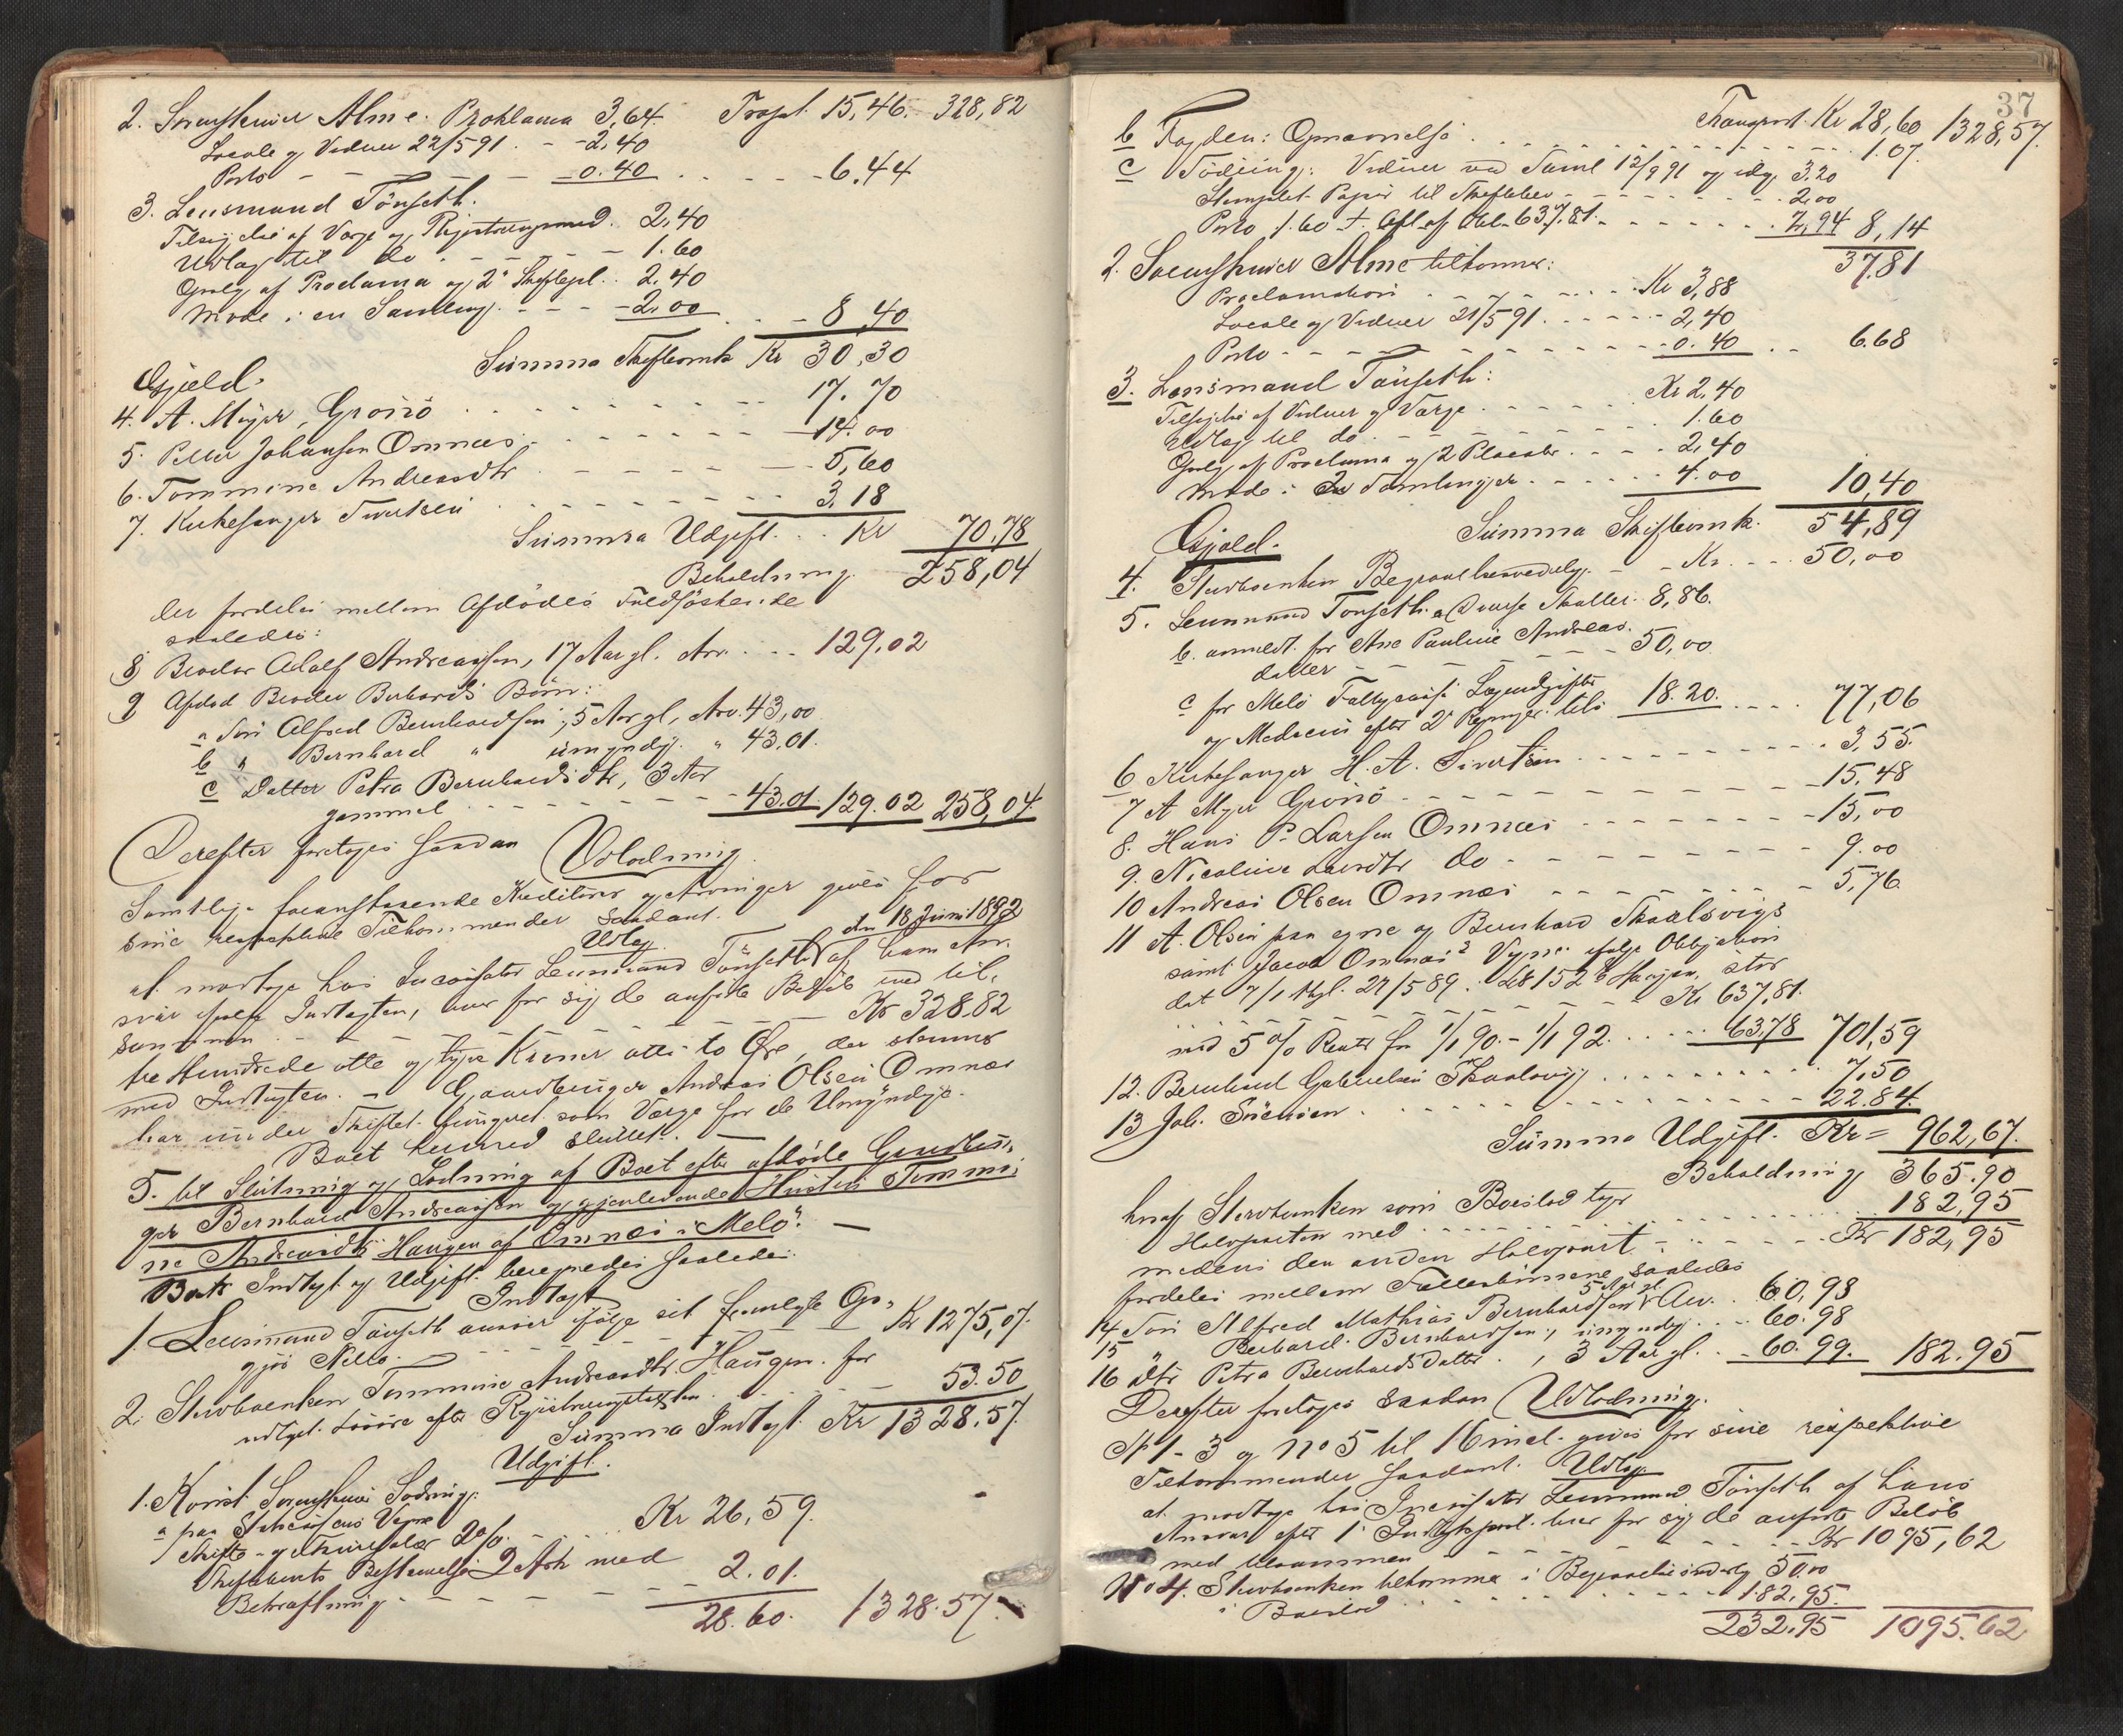 2. Sorenskriver Alme. Proklama 3,64. Trspt. 15,46. 328,82
Locale og Vidner 22/5 91. - - 2,40
Porto - - - - - 0.40 . . - - - 6.44
3. Lensmand Tönseth.
Tilsigelse af Værge og Registreringsmænd. 2,40
Udlæg til do . - - - - 1.60
Opslg. af Proclama og 2 Skiftepl. . 2,40
Møde i en Samling. - - - 2.00 . . - 8,40
Summa Skifteomk Kr 30,30
Gjæld.
4. A. Meyer, Grönö . . . . 17.70
5. Peter Johansen Omnæs . - - - 14.00
6. Tommine Andreasdtr . - - - - 5,60
7. Kirkesanger Sivertsen . . . . 3,18
Summa Udgift. . . Kr 70,78
Beholdning 258,04
der fordeles mellem Afdödes Fuldsöskende
saaledes:
8 Broder Adolf Andreassen, 17 Aar gl. Arv. . . . 129,02
9 Afdöd Broder Bernhards Börn:
a Sön Alfred Bernhardsen, 5 Aar gl, Arv. 43,00
b " Bernhard " umyndig. " 43,01.
c Datter Petra Bernhardsdtr, 3 Aar
gammel . - - - - - - 43.01 129.02 258,04
Derefter foretoges saadan Udlodning.
Samtlige foranstaaende Kreditorer og Arvinger gives for
sine respektive Tilkommender saadant
Udlæg
den 18 Juni 1892
at modtage hos Incassator Lensmand Tönseth af ham An-
svar ifølge Indtægten, hver for sig de anførte Beløb med til-
sammen . . - - - - - - Kr 328.82
tre Hundrede otte og tyve Kroner otti to Øre, der stemmer
med Indtægten. - Gaardbruger Andreas Olsen Omnæs
har under Skiftet fungeret som Værge for de Umyndige.
Boet hermed sluttet. -
5. til Slutning og Lodning af Boet efter afdöde Gaardbru-
ger Bernhard Andreassen og gjenlevende Hustru Tommi-
ne Andreasdtr Haugen af Omnæs i Melö. -
Boets Indtægt og Udgift beregnedes saaledes:
Indtægt
1. Lensmand Tönseth ansvar ifølge sit fremlagte Op-
gjør Netto. - - - - - - Kr 1275,07.
2. Stervboenken Tommine Andreasdtr Haugen for
udlagt Løsøre efter Registreringstaxten . . . . 53.50
Summa Indtægt Kr 1328.57
Udgift.
1. Konst. Sorenskriver Södring:
a paa Vegne
Skifte- og 2% . . . . Kr 26,59.
Skiftebrevets Beskrivelse 2 Ark med
Bekræftning . - - - - 2.01.
28.60. 1328.57
37
Transport Kr 28,60 1328,57.
b Fogden: Opnævnelse . . . . 1.07.
c Södring: Vidner ved Saml 12/9 91 og udg. 3.20
Stemplet Papir til Skiftebrev - - - - . . 2.00
Porto 1.60 + Afl. af Obl. 637.81 - - - - . . 2,94 8,14
37,81
2. Sorenskriver Alme tilkommer:
Proclamation . - - - - . Kr 3,88
Locale og Vidner 21/5 91 . - - - - 2,40
Porto - - - - - - - - 0.40 . . 6.68
3. Lensmand Tönseth:
Tilsigelse af Vidner og Værge . - - - Kr 2,40
Udlæg til do . - - - - - 1.60
Opslg. af Proclama og 2 Placater . . - . 2,40
Møde i 2 Samlinger - - - - - 4.00 10,40
Summa Skifteomk. 54,89
Gjæld.
4. Stervboenken Begravelsesvederlg. - - Kr. - - - 50,00
5. Lensmand Tönseth a Diverse Skatter. 8,86.
b. anmeldt for Ane Pauline Andreas-
datter - - - - - - - 50,00
c for Melö Fattigcasse Lægeudgifter
og Medicin efter 2 Regninger tils 18.20. . . . . 77,06
6 Kirkesanger H. A. Sivertsen . - - - - . 3,55.
7 A Meyer Grönö . - - - - - - 15,48
8. Hans P. Larsen Omnæs . - - - - - 15,00
9. Nicoline Larsdtr do - - - - - - 9.00
10 Andreas Olsen Omnæs - - - - - - 5,76.
11 A. Olsen paa egne og Bernhard Skaalsvigs
samt Jacob Omnæs's Vegne ifølge Obligation
dat 7/1 thgl. 27/5 89. LB 152 b Haugen, stor
- - - - - - - Kr 637,81.
med 5% Rente fra 1/1 90 - 1/1 92 . . . . 63,78 701,59
12. Bernhard Gabrielsen Skaalsvig . . . . 7,50
13 Joh. Sörensen . . . . 22.84.
Summa Udgift. Kr = 962,67.
Beholdning 365.90
hvoraf Stervboenken som Boeslod tager
Halvparten med . . . . 182,95
medens den anden Halvpart . - - - Kr 182,95
fordeles mellem Fællesbörnene saaledes
14 Sön Alfred Mathias Bernhardsen, 5 Aar gl. Arv. . 60,98
15 " Bernhard Bernhardsen, umyndig . . . 60.98
16 Dtr Petra Bernhardsdatter . , 3 Aar gl. . . 60.99. 182.95
Derefter foretoges saadan Udlodning.
No 1-3 og No 5 til 16 incl. gives for sine respektive
Tilkommender saadant Udlæg
at modtage hos Incassator Lensmand Tönseth af hans
Ansvar efter 1. Indtægtspost hver for sig de anførte Beløb
med tilsammen - - - - - - Kr 1095,62
No 4. Stervboenken tilkommer i Begravelsesvederlg 50,00
i Boeslod . . . . 182,95.
232.95 1095.62